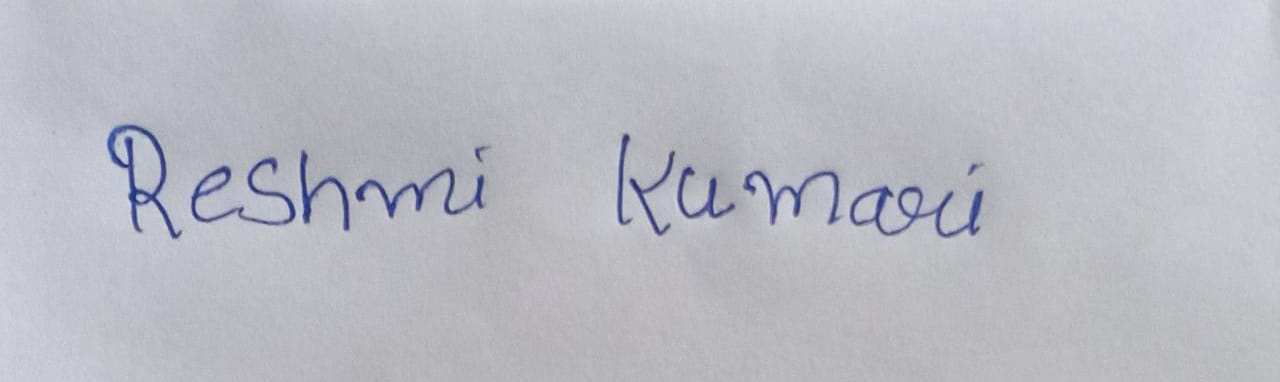 Reshmi Kumari